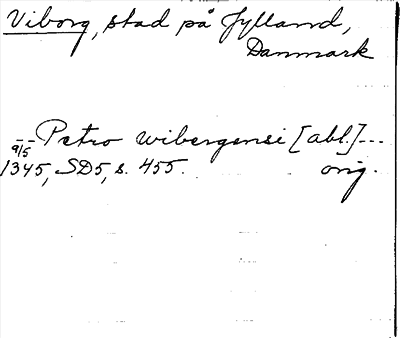 Viborg, stad på Jylland,
Danmark
-- Petro wibergensi [abl.] ---
9/5
1345, SD5, s. 455. orig.